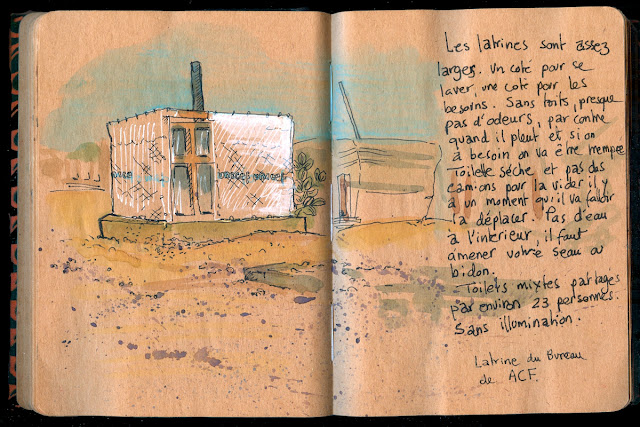 Les latrines sont assez
larges. Un coté pour se
laver, une coté pour les
besoins. Sans toits, presque
pas d'odeurs, par contre
quand il pleut et si on
à besoin on va être trempée
Toilete séche et pas des
camions pour la vider: il y
à un moment qu'il va falloir
la déplacer. Pas d'eau
à l'interieur, il faut
amener votre seau ou
bidon.
- Toilets mixtes partages
par environ 23 personnes.
Sans illumination.
Latrine du Bureau
de ACF.